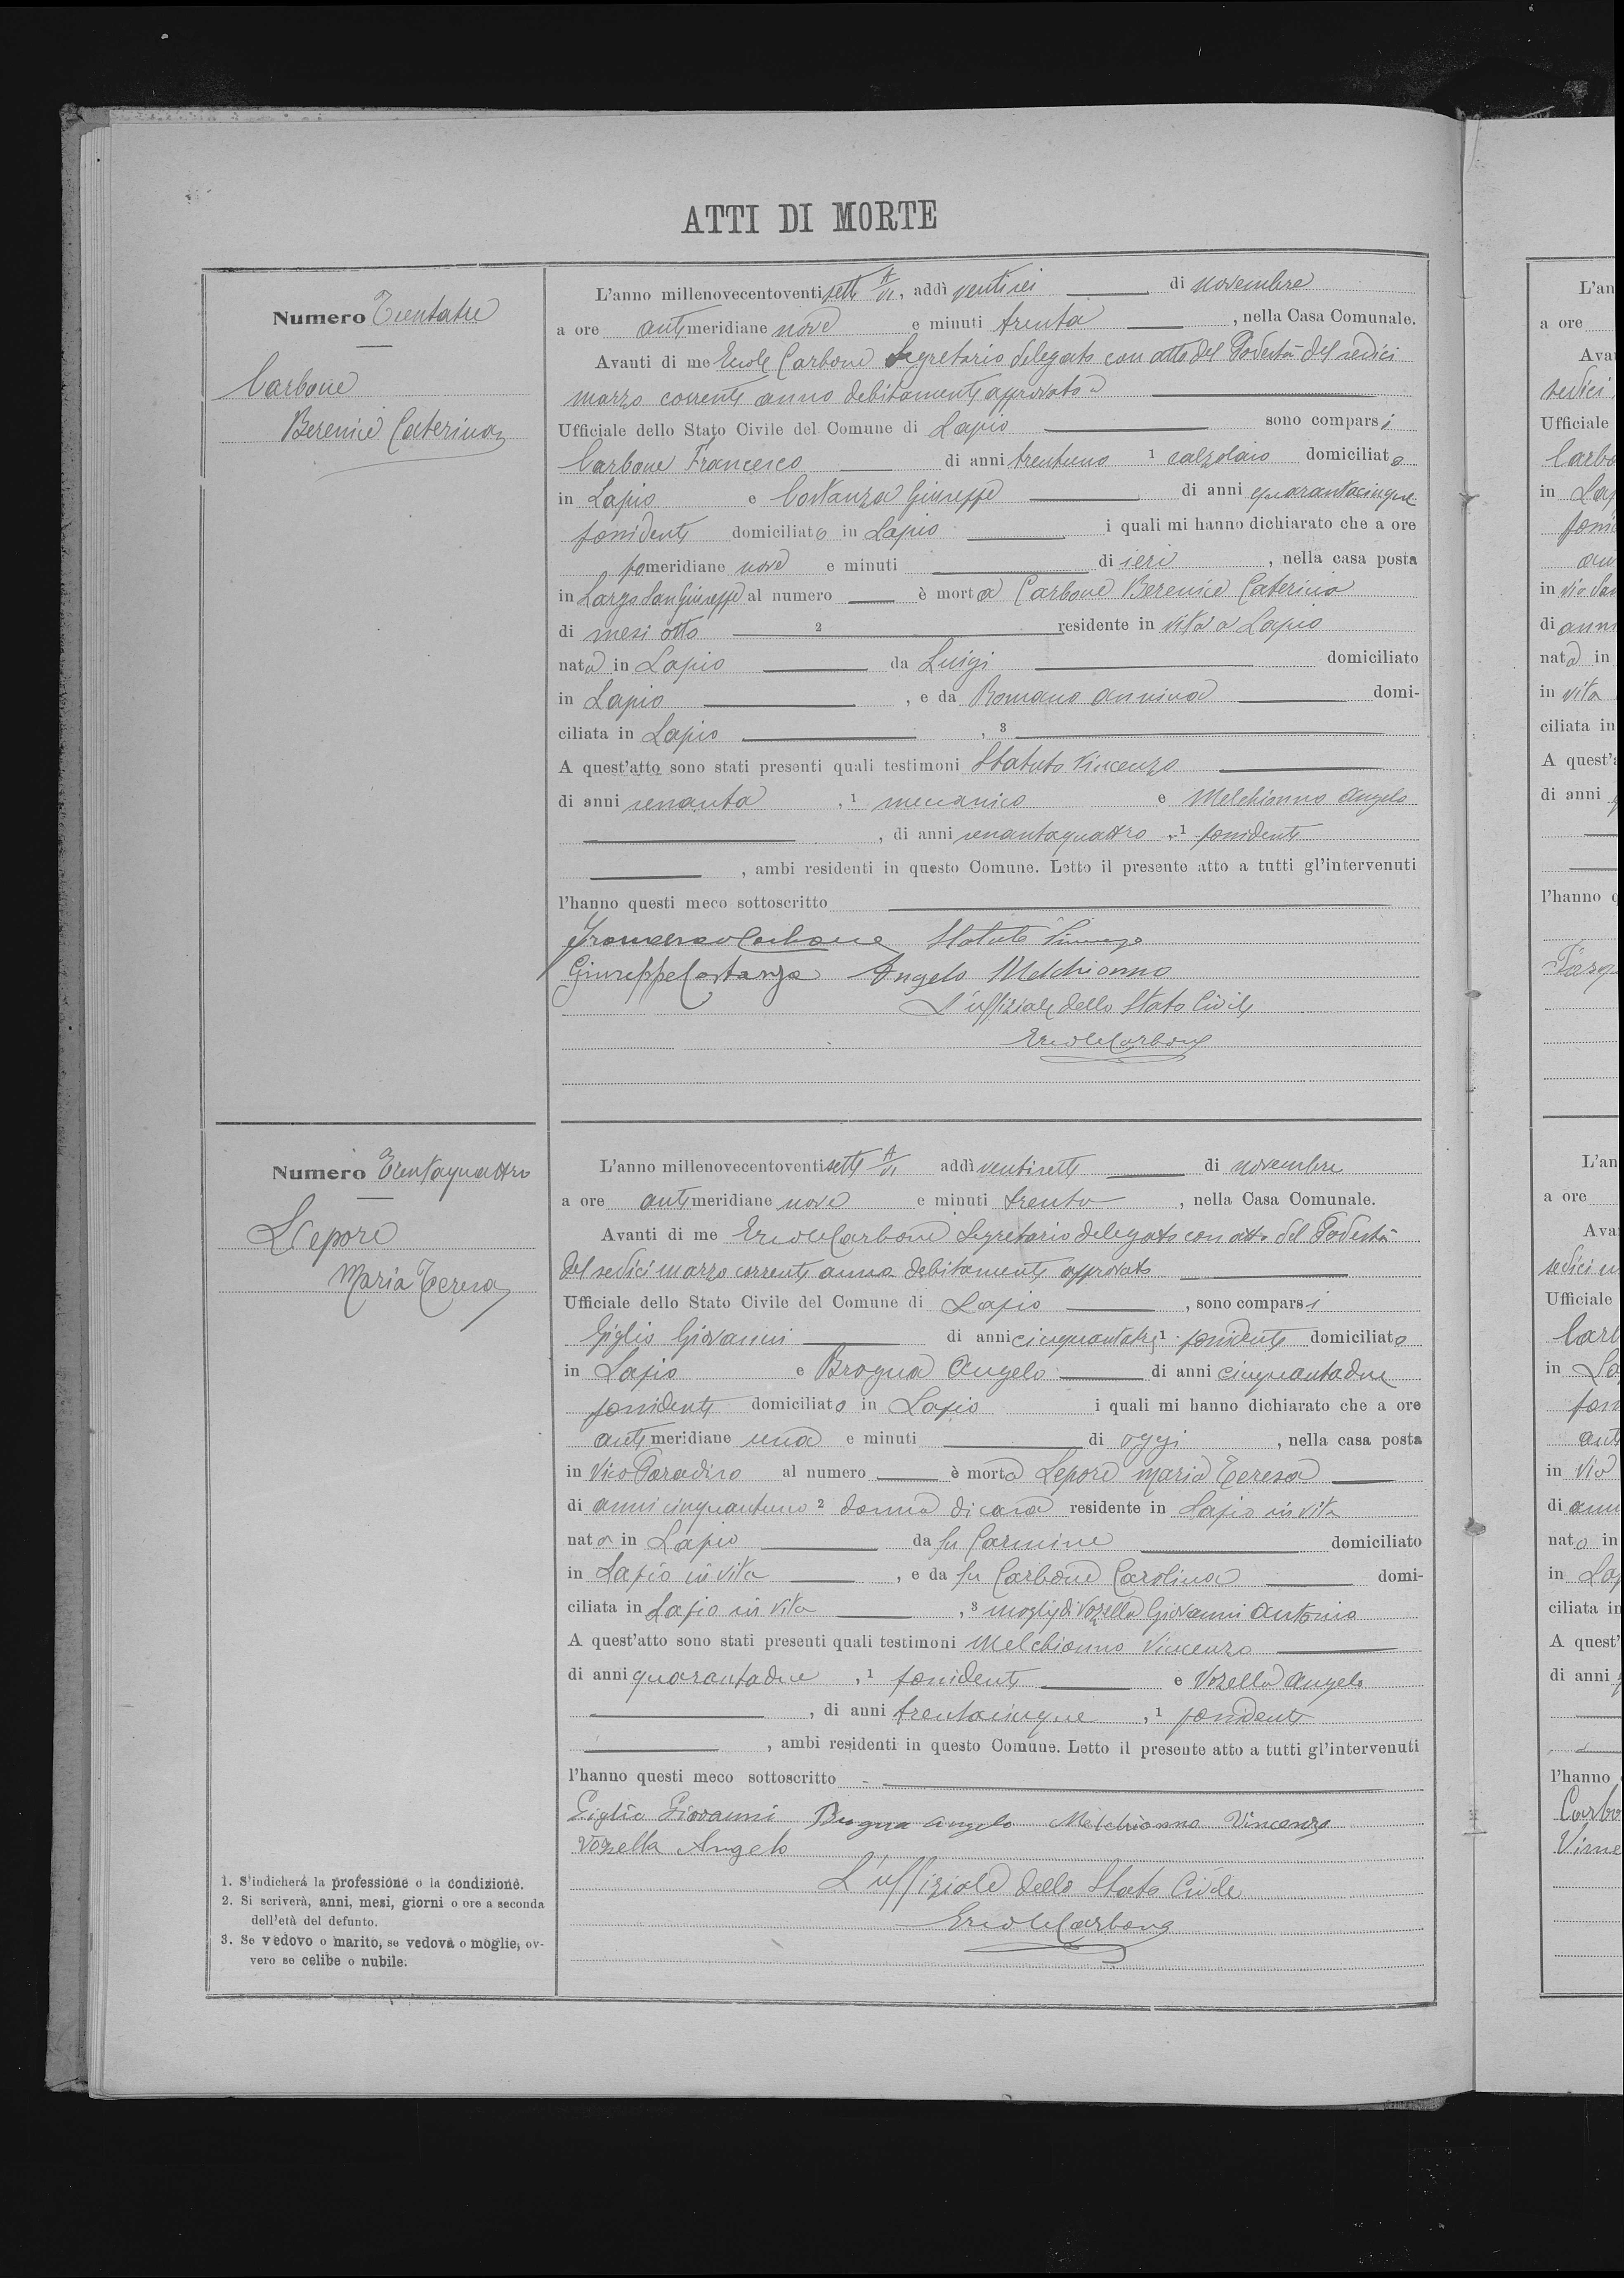 ATTI DI MORTE
Numero Trentatre
Carbone
Berenice Caterina
L'anno millenovecentoventisette A/VI, addì ventisei di novembre
a ore antimeridiane nove e minuti trenta, nella Casa Comunale.
Avanti di me Ercole Carbone Segretario delegato con atto del Podestà del sedici
marzo corrente anno debitamente approvato
Ufficiale dello Stato Civile del Comune di Lapio sono comparsi
Carbone Francesco di anni trentuno 1 calzolaio domiciliato
in Lapio e Costanza Giuseppe di anni quarantacinque
possidente domiciliato in Lapio i quali mi hanno dichiarato che a ore
pomeridiane nove e minuti di ieri, nella casa posta
in Largo San Giuseppe al numero è morta Carbone Berenice Caterina
di mesi otto 2 residente in vita a Lapio
nata in Lapio da Luigi domiciliato
in Lapio, e da Romano Annina domi-
ciliata in Lapio, 3
A quest'atto sono stati presenti quali testimoni Statuto Vincenzo
di anni sessanta, 1 meccanico e Melchionno Angelo
, di anni sessantaquattro, 1 possidente
, ambi residenti in questo Comune. Letto il presente atto a tutti gl'intervenuti
l'hanno questi meco sottoscritto
Francesco Carbone Statuto Vincenzo
Giuseppe Costanza Angelo Melchionno
L'uffiziale dello Stato Civile
Ercole Carbone
Numero Trentaquattro
Lepore
Maria Teresa
L'anno millenovecentoventisette A/VI addì ventisette di novembre
a ore antimeridiane nove e minuti trenta, nella Casa Comunale.
Avanti di me Ercole Carbone Segretario delegato con atto del Podestà
del sedici marzo corrente anno debitamente approvato
Ufficiale dello Stato Civile del Comune di Lapio, sono comparsi
Giglio Giovanni di anni cinquantatre 1 possidente domiciliato
in Lapio e Brogna Angelo di anni cinquantadue
possidente domiciliato in Lapio i quali mi hanno dichiarato che a ore
antimeridiane una e minuti di oggi, nella casa posta
in Vico Paradiso al numero è morta Lepore Maria Teresa
di anni cinquantuno 2 donna di casa residente in Lapio in vita
nata in Lapio da fu Carmine domiciliato
in Lapio in vita, e da fu Carbone Carolina domi-
ciliata in Lapio in vita, 3 moglie di Vozella Giovanni Antonio
A quest'atto sono stati presenti quali testimoni Melchionno Vincenzo
di anni quarantadue, 1 possidente e Vozella Angelo
, di anni trentacinque, 1 possidente
, ambi residenti in questo Comune. Letto il presente atto a tutti gl'intervenuti
l'hanno questi meco sottoscritto
Giglio Giovanni Brogna Angelo Melchionno Vincenzo
Vozella Angelo
L'uffiziale dello Stato Civile
Ercole Carbone
1. S'indicherà la professione o la condizione.
2. Si scriverà, anni, mesi, giorni o ore a seconda
dell'età del defunto.
3. Se vedovo o marito, se vedova o moglie, ov-
vero se celibe o nubile.
L'an
a ore
Ava
sedici
Ufficiale
Carbo
in Lap
in via San
di anni
nata in
in vita
ciliata in
A quest'a
di anni
l'hanno q
L'an
a ore
Ava
sedici
Ufficiale
Carb
in La
in Via
di anni
nato in
in Lap
ciliata in
A quest'
di anni
l'hanno
Carbo